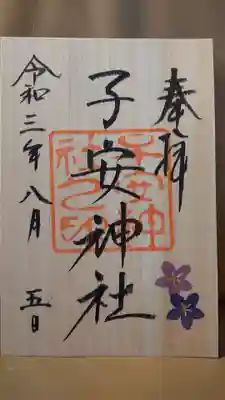 奉拝
子安神社
令和三年八月五日